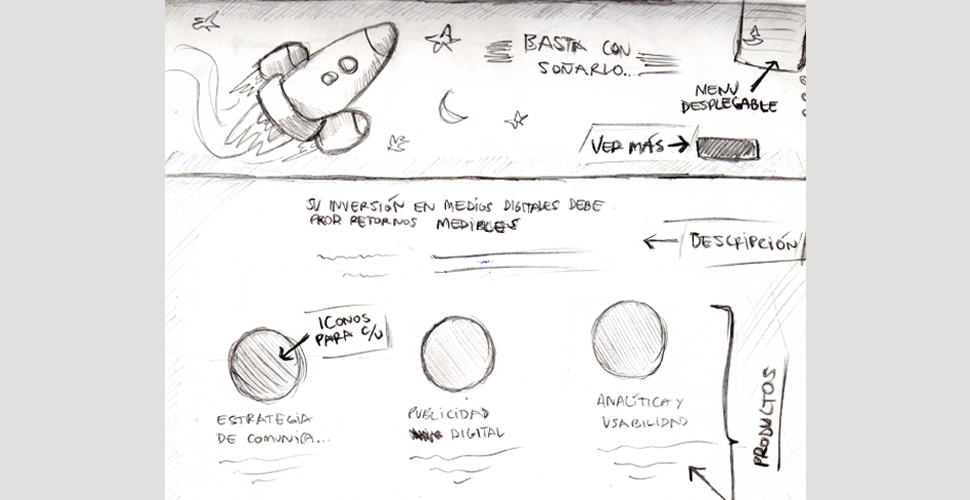 BASTA CON
SOÑARLO...
MENU
DESPLEGABLE
VER MÁS
SU INVERSIÓN EN MEDIOS DIGITALES DEBE
RETORNOS MEDIBLES
DESCRIPCIÓN
ICONOS
PARA C/U
ESTRATEGIA
DE COMUNICA...
PUBLICIDAD
DIGITAL
ANALÍTICA Y
USABILIDAD
PRODUCTOS